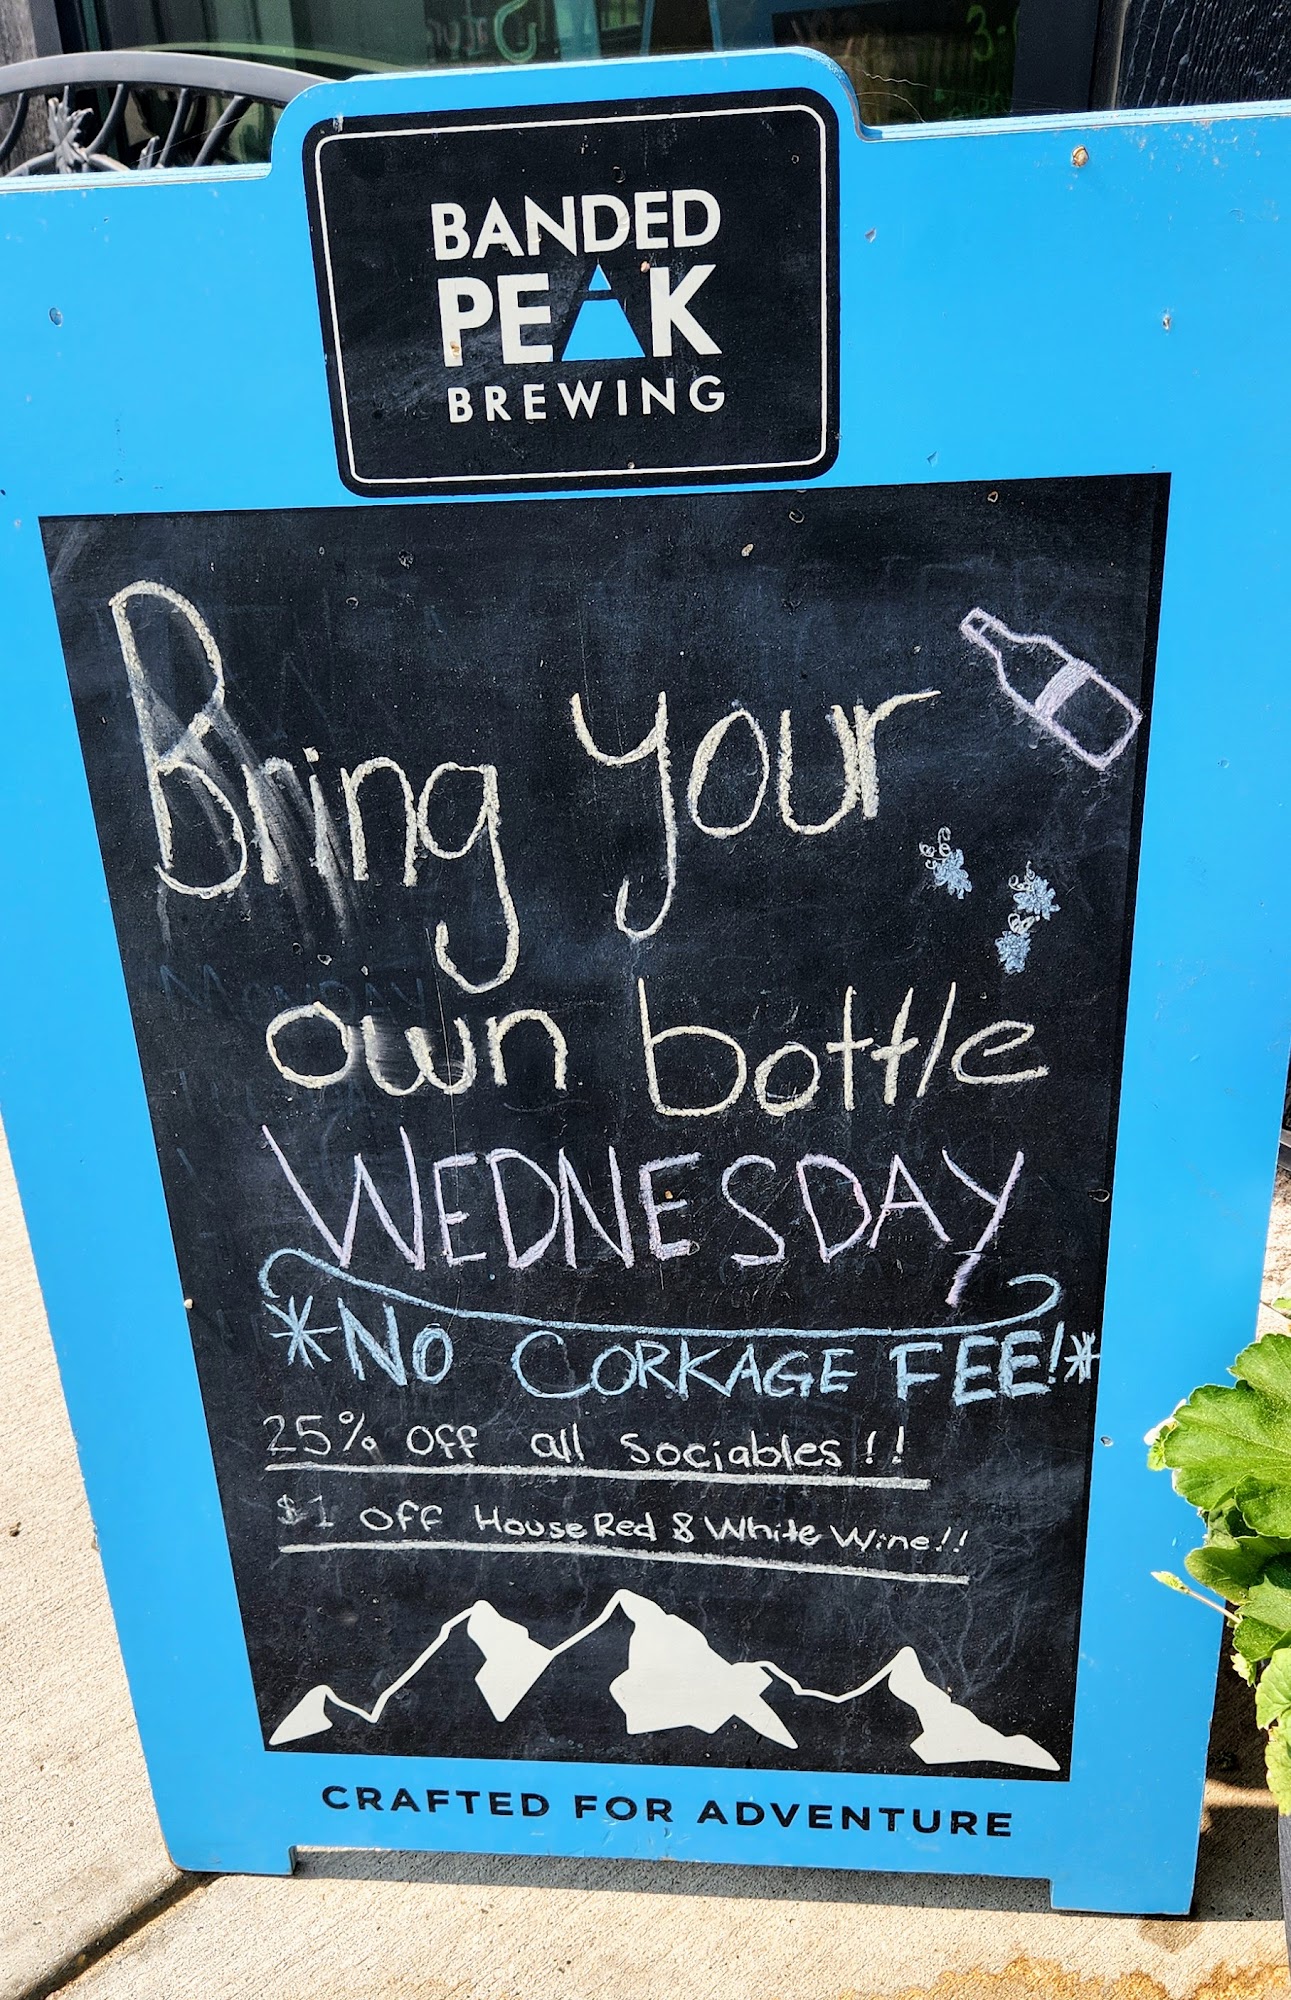 BANDED
PEAK
BREWING
Bring your
own bottle
WEDNESDAY
*NO CORKAGE FEE!*
25% off all Sociables!!
$1 off House Red & White Wine!!
CRAFTED FOR ADVENTURE
Monday